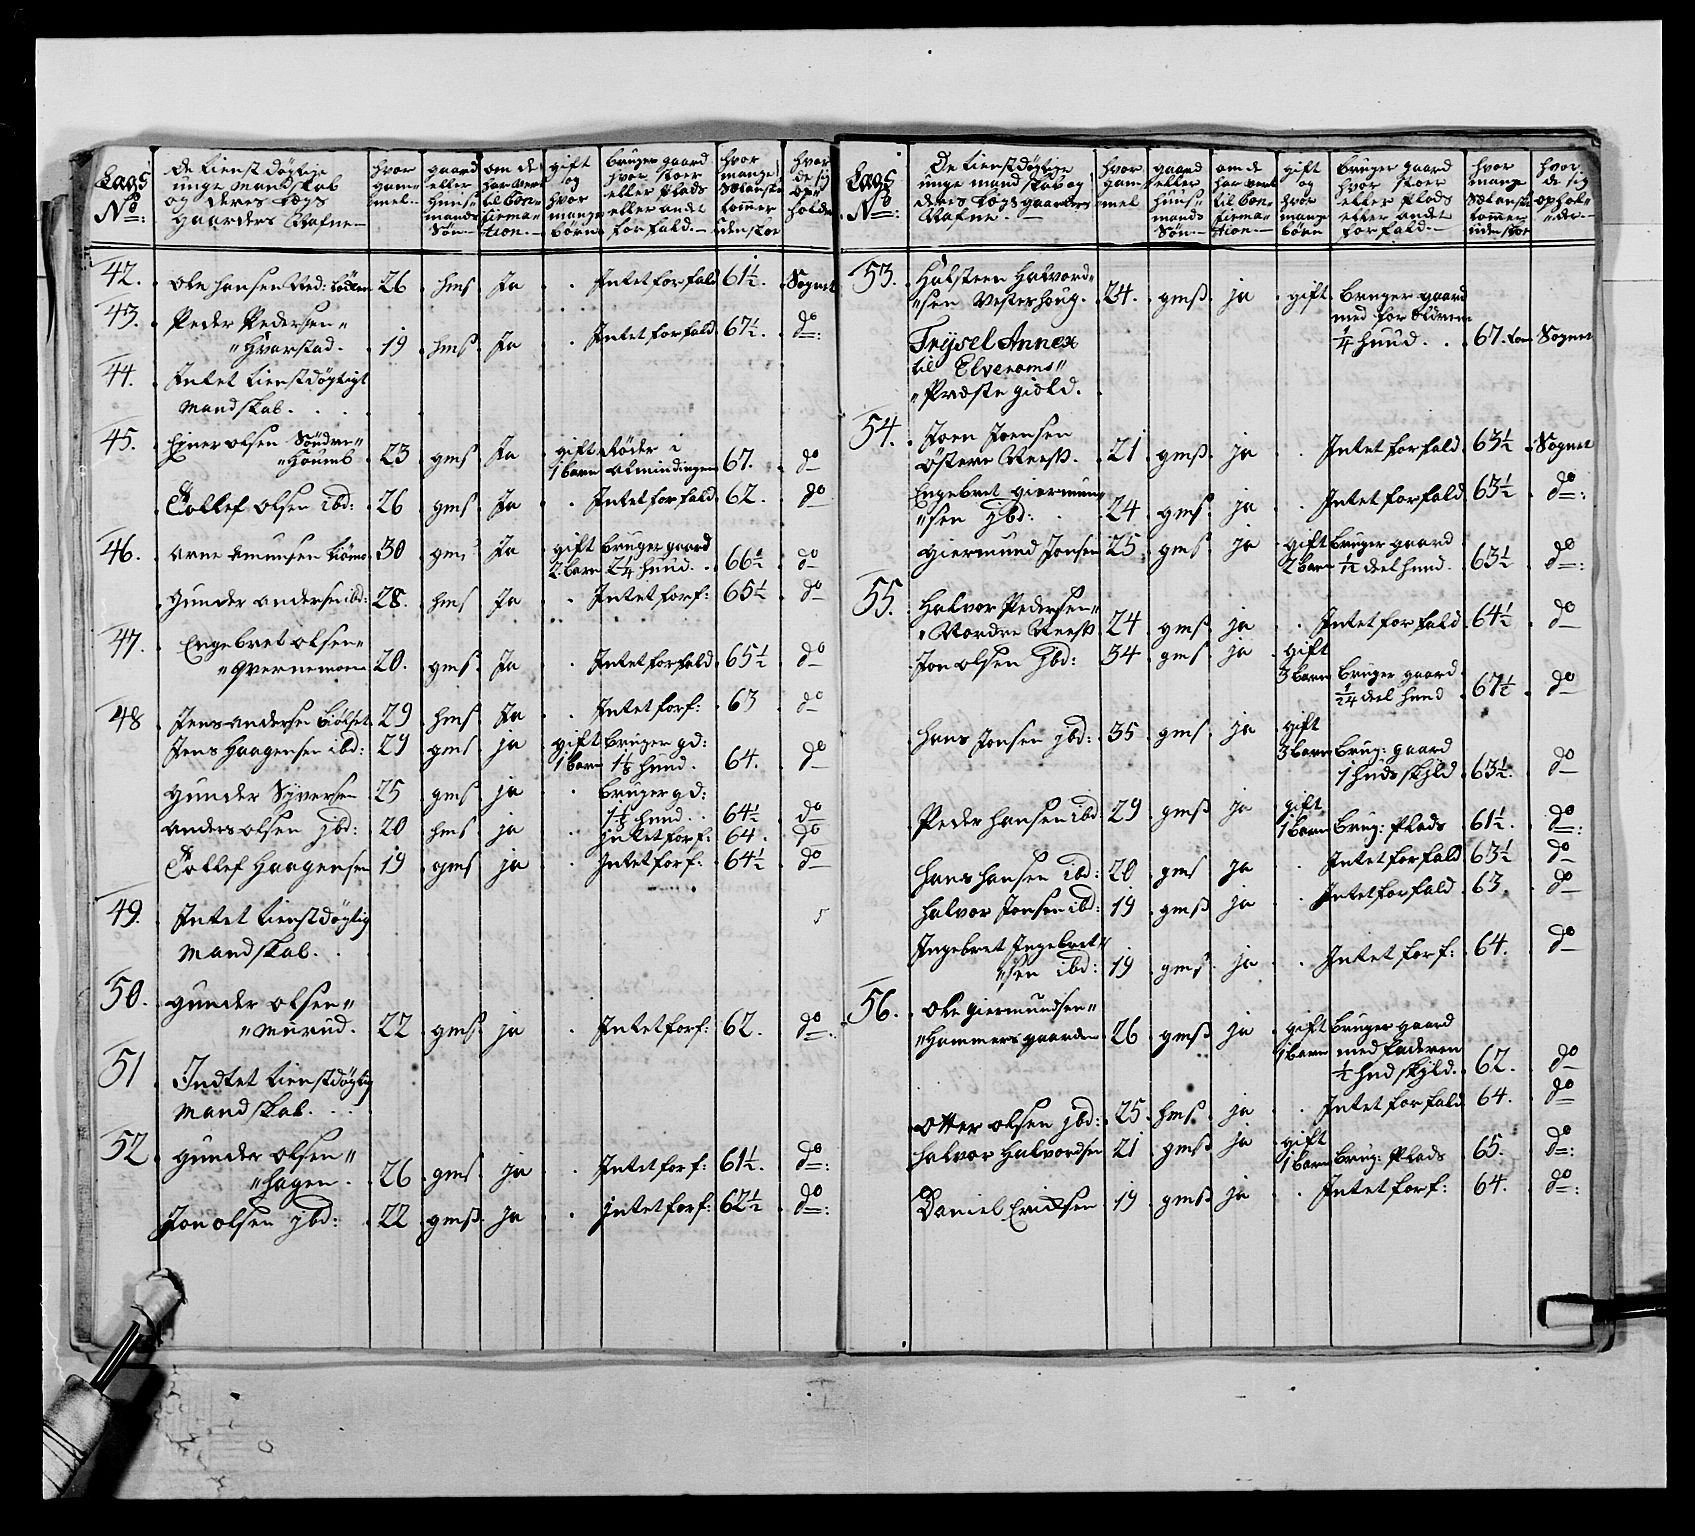 Lægs No:
De tienstdögtige unge Mandskab og deres Lægs Gaarders Nafne
hvor gammel
gaard eller huusmands Søn
om de har vert til Confirmation
gift og hvor mange børn
bruger gaard hvor stoer eller Plads eller andet forfald
hvor mange Sælanske tommer
hvor de sig opholder
42. Ole Hansen Ned: 26 hms Ja Intet forfald 61½ Sognet
43. Peder Pedersen
Hvarstad 19 hms Ja Intet forfald 67½ do
44. Intet tienstdögtigt
Mandskab
45. Einer Olsen Søndre
Houmb 23 gms Ja gift 1 barn Røder i Almindingen 67. do
Tollef Olsen ibd: 26 gms Ja Intet forfald 62. do
46. Arne Amunsen 30 gms Ja gift 2 barn bruger gaard 2¼ hund. 66½ do
Gunder Andersen ibd: 28. hms Ja Intet forf: 65½ do
47. Engebret Olsen
Qvernemoen 20. gms Ja Intet forfald 65½ do
48 Jens Andersen Biølset 29 hms Ja Intet forf: 63 do
Jens Haagensen ibd: 29 gms ja gift 1 barn bruger gd: 1½ hund. 64. do
Gunder Syversen 25 gms ja bruger gd: 1½ hund. 64½ do
Anders Olsen jbd: 20 hms ja Intet forf: 64. do
Tollef Haagensen 19 gms ja Intet forf: 64½ do
49. Intet tienstdögtig
Mandskab.
50. Gunder Olsen
Murud. 22 gms ja Intet forf: 62. do
51 Indtet tienstdögtig
Mandskab.
52 Gunder Olsen
Hagen. 26 gms ja Intet forf: 61½. do
Jon Olsen jbd: 22 gms ja jntet forf: 62½ do
Lægs No:
De tienstdögtige unge mandskab og deres Lægs gaarders Nafne
hvor gammel
gaard eller huusmands Søn
om de har vert til Confirmation
gift og hvor mange børn
bruger gaard hvor stoer eller plads eller andet forfald
hvor mange Sælanske tommer
hvor de sig opholder
53. Halsteen Halvord-
sen Vesterhoug. 24. gmß ja gift bruger gaard med for Ældrene ¼ hund. 67. tom Sognet
Trysel Annex
til Elveroms
Præste giæld.
54. Joen Joensen
Østere Neess. 21 gmß ja Intet forfald 63½ Sognet
Engebret Giermund-
sen jbd: 24 gms ja Intet forfald 63½ do
Giermund Jonsen 25 gms ja gift 2 barn bruger gaard 1/12 deel hund. 63½ do
55. Halvor Pedersen
Nordre Neess 24 gmß ja Intet forfald 64½ do
Jon Olsen jbd: 34 gms ja gift 3 barn bruger gaard 1/24 deel hund 67½ do
Hans Jonsen jbd: 35 gms ja gift 3 barn brug: gaard 1 huds skyld 63½. do
Peder Hansen ibd 29 gmß ja gift 1 barn brug: Plads 61½. do
Hans Hansen ibd: 20 gms ja Intet forfald 63½ do
Halvor Jonsen ibd: 19 gmß ja Intet forfald 63. do
Ingebret Ingebret-
sen ibd: 19 gms ja Intet forf: 64. do
56. Ole Giermundsen
Hammersgaarden 26 gmß ja gift 1 barn bruger gaard med faderen ½ hud skyld. 62. do
Otter Olsen jbd: 25 hms ja Intet forfald 64. do
Halvor Halvordsen 21 gmß ja gift 1 barn brug: Plads 65. do
Daniel Ericksen 19 gmß ja Intet forf: 64. do